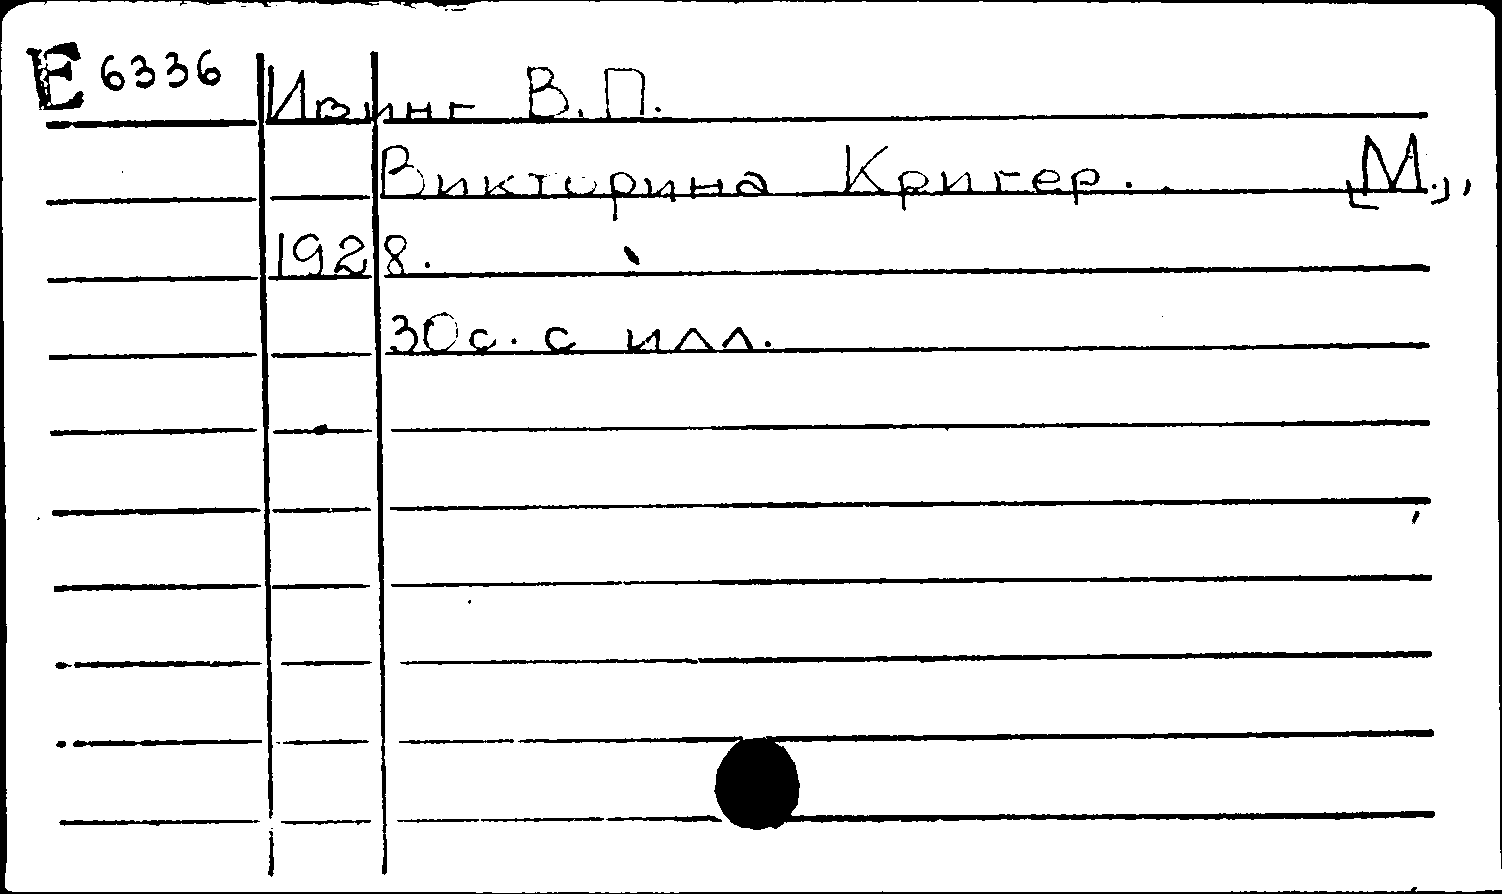 E 6336 Ивинг В.П.
Викторина Кригер. [М.],
1928.
30с. с илл.